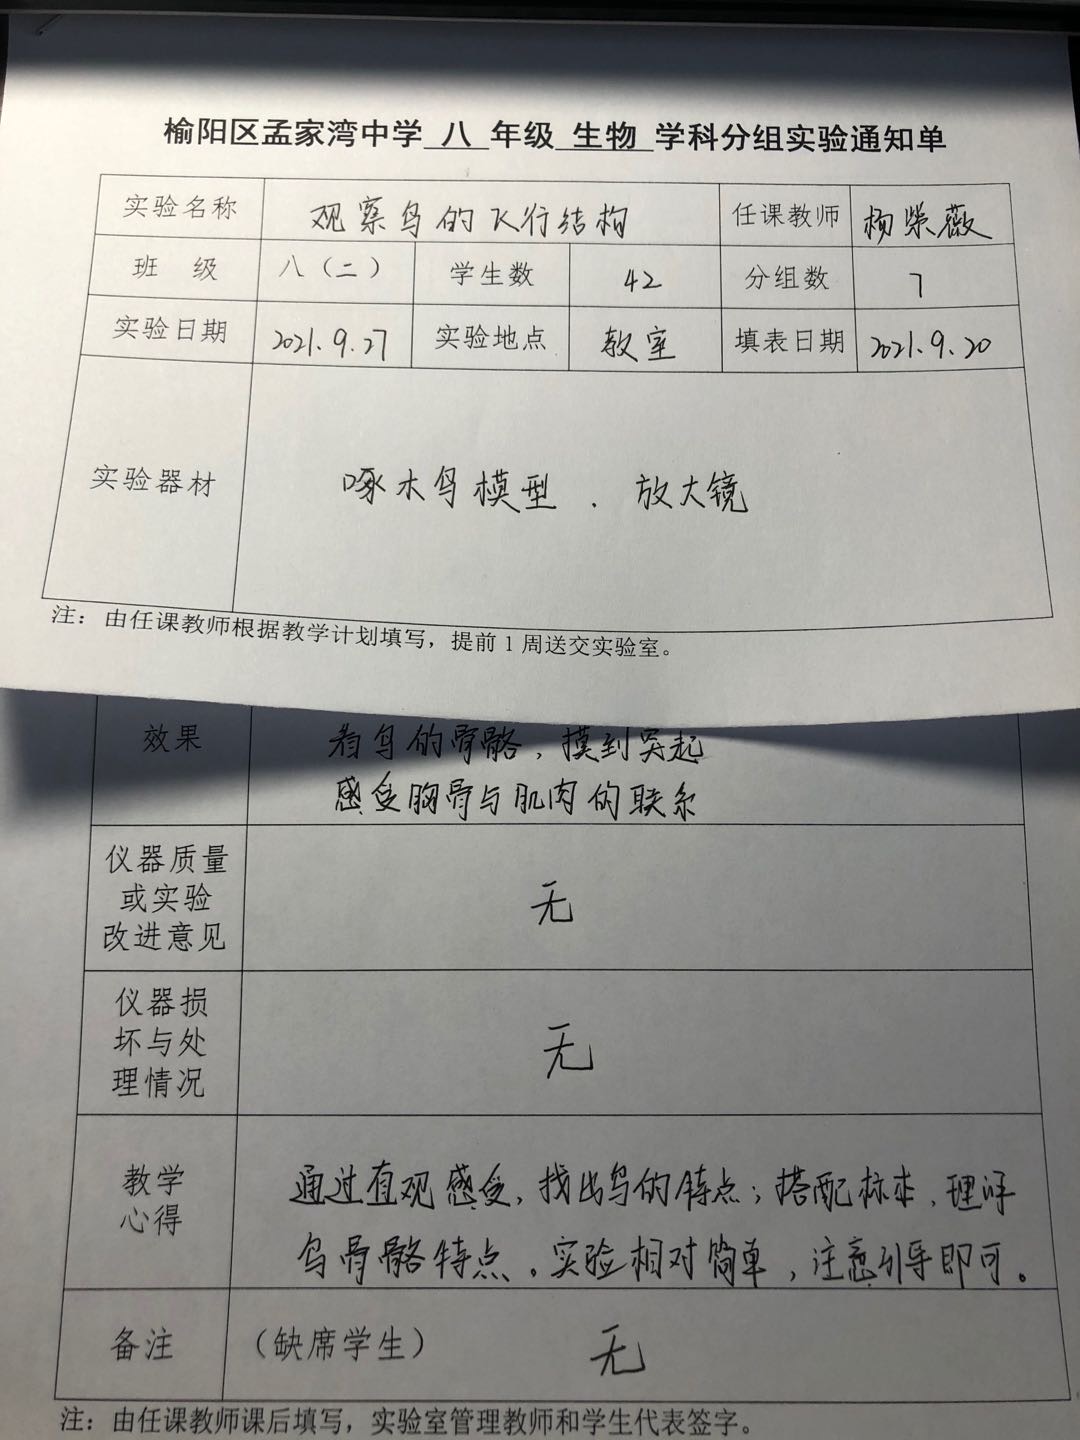 榆阳区孟家湾中学 八 年级 生物 学科分组实验通知单
实验名称 观察鸟的飞行结构 任课教师 杨荣薇
班 级 八(二) 学生数 42 分组数 7
实验日期 2021.9.27 实验地点 教室 填表日期 2021.9.20
实验器材 啄木鸟模型 . 放大镜
注：由任课教师根据教学计划填写，提前1周送交实验室。
效果 看鸟的骨骼，摸到突起
感受胸骨与肌肉的联系
仪器质量
或实验
改进意见
无
仪器损
坏与处
理情况
无
教学
心得
通过直观感受，找出鸟的特点；搭配标本，理解
鸟骨骼特点。实验相对简单，注意引导即可。
备注 （缺席学生） 无
注：由任课教师课后填写，实验室管理教师和学生代表签字。